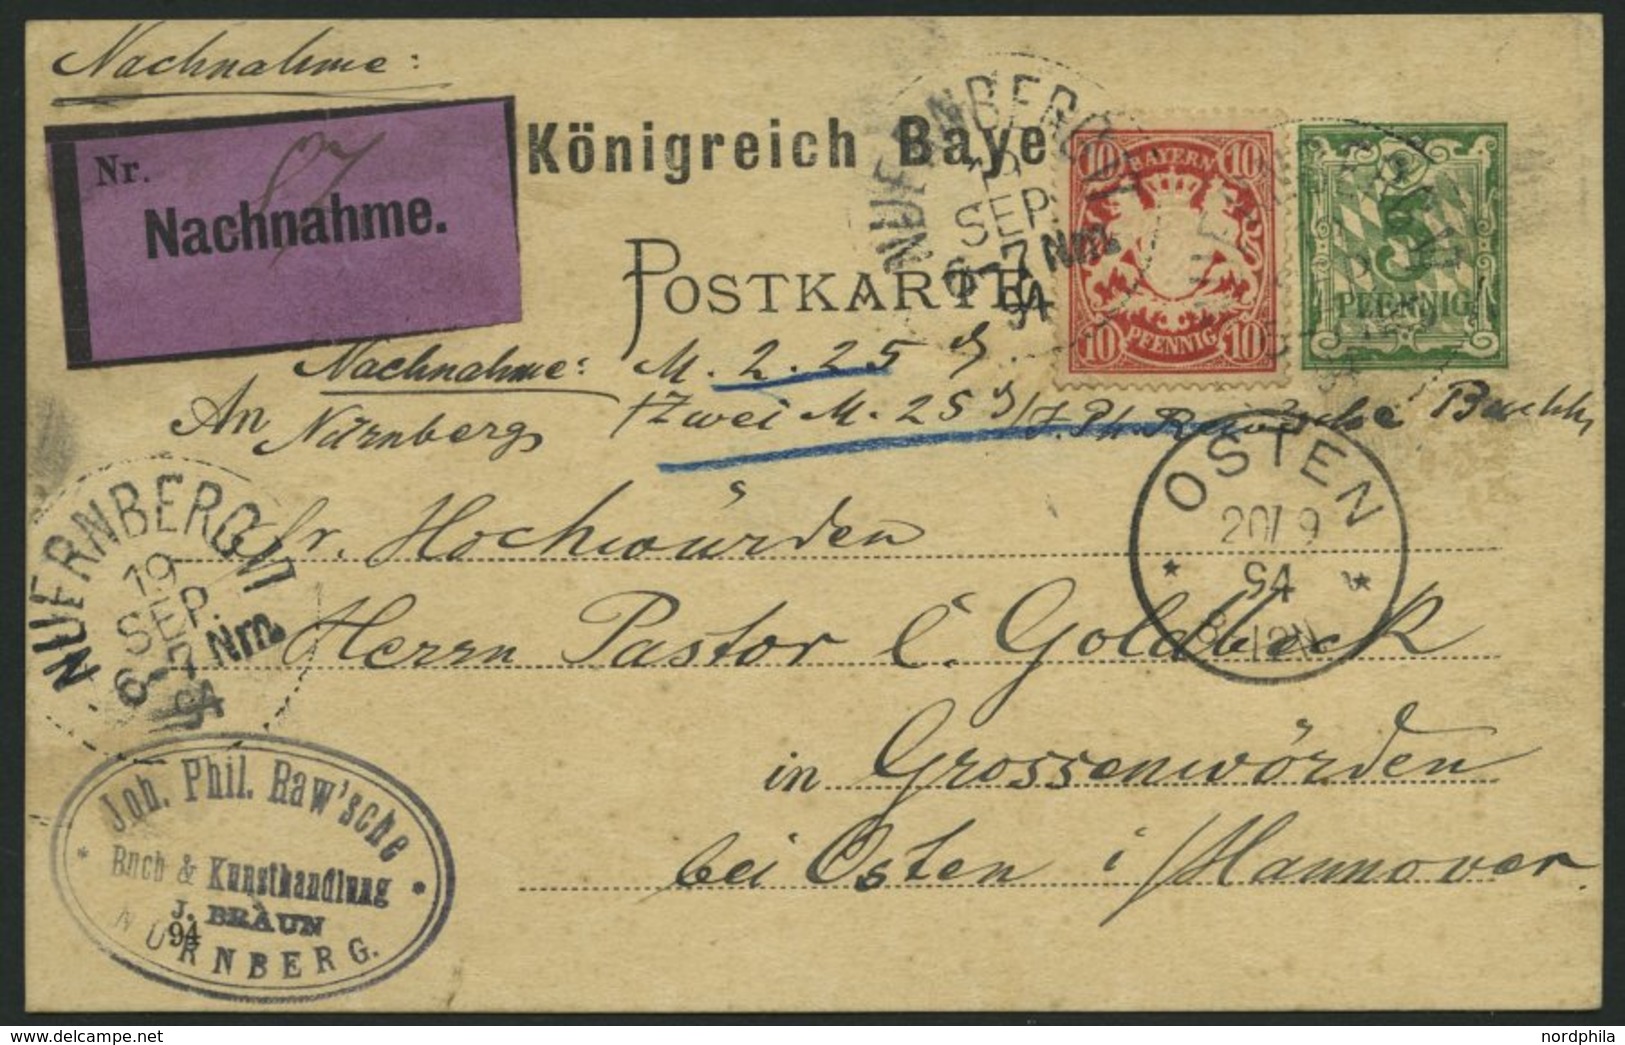 Nachnahme:
Nr. 87
Nachnahme.
Königreich Baye
POSTKARTE
NUERNBERG VI
19
SEP.
6-7 Nm.
94
10 BAYERN 10
10 PFENNIG 10
5
PFENNIG
Nachnahme: M. 2.25 ₰.
An Nürnberg /Zwei M. 25 ₰/ J. Ph. Raw'sche Buchh,
Sr. Hochwürden
Herrn Pastor C. Goldbeck
in Grossenwörden
bei Osten i/Hannover.
OSTEN
20/ 9
94
8-12N
* *
NUERNBERG VI
19
SEP.
6-7 Nm.
94
Joh. Phil. Raw'sche
Buch & Kunsthandlung
J. BRAUN
NÜRNBERG.
94
Posted by https://www.delcampe.net
nordphila